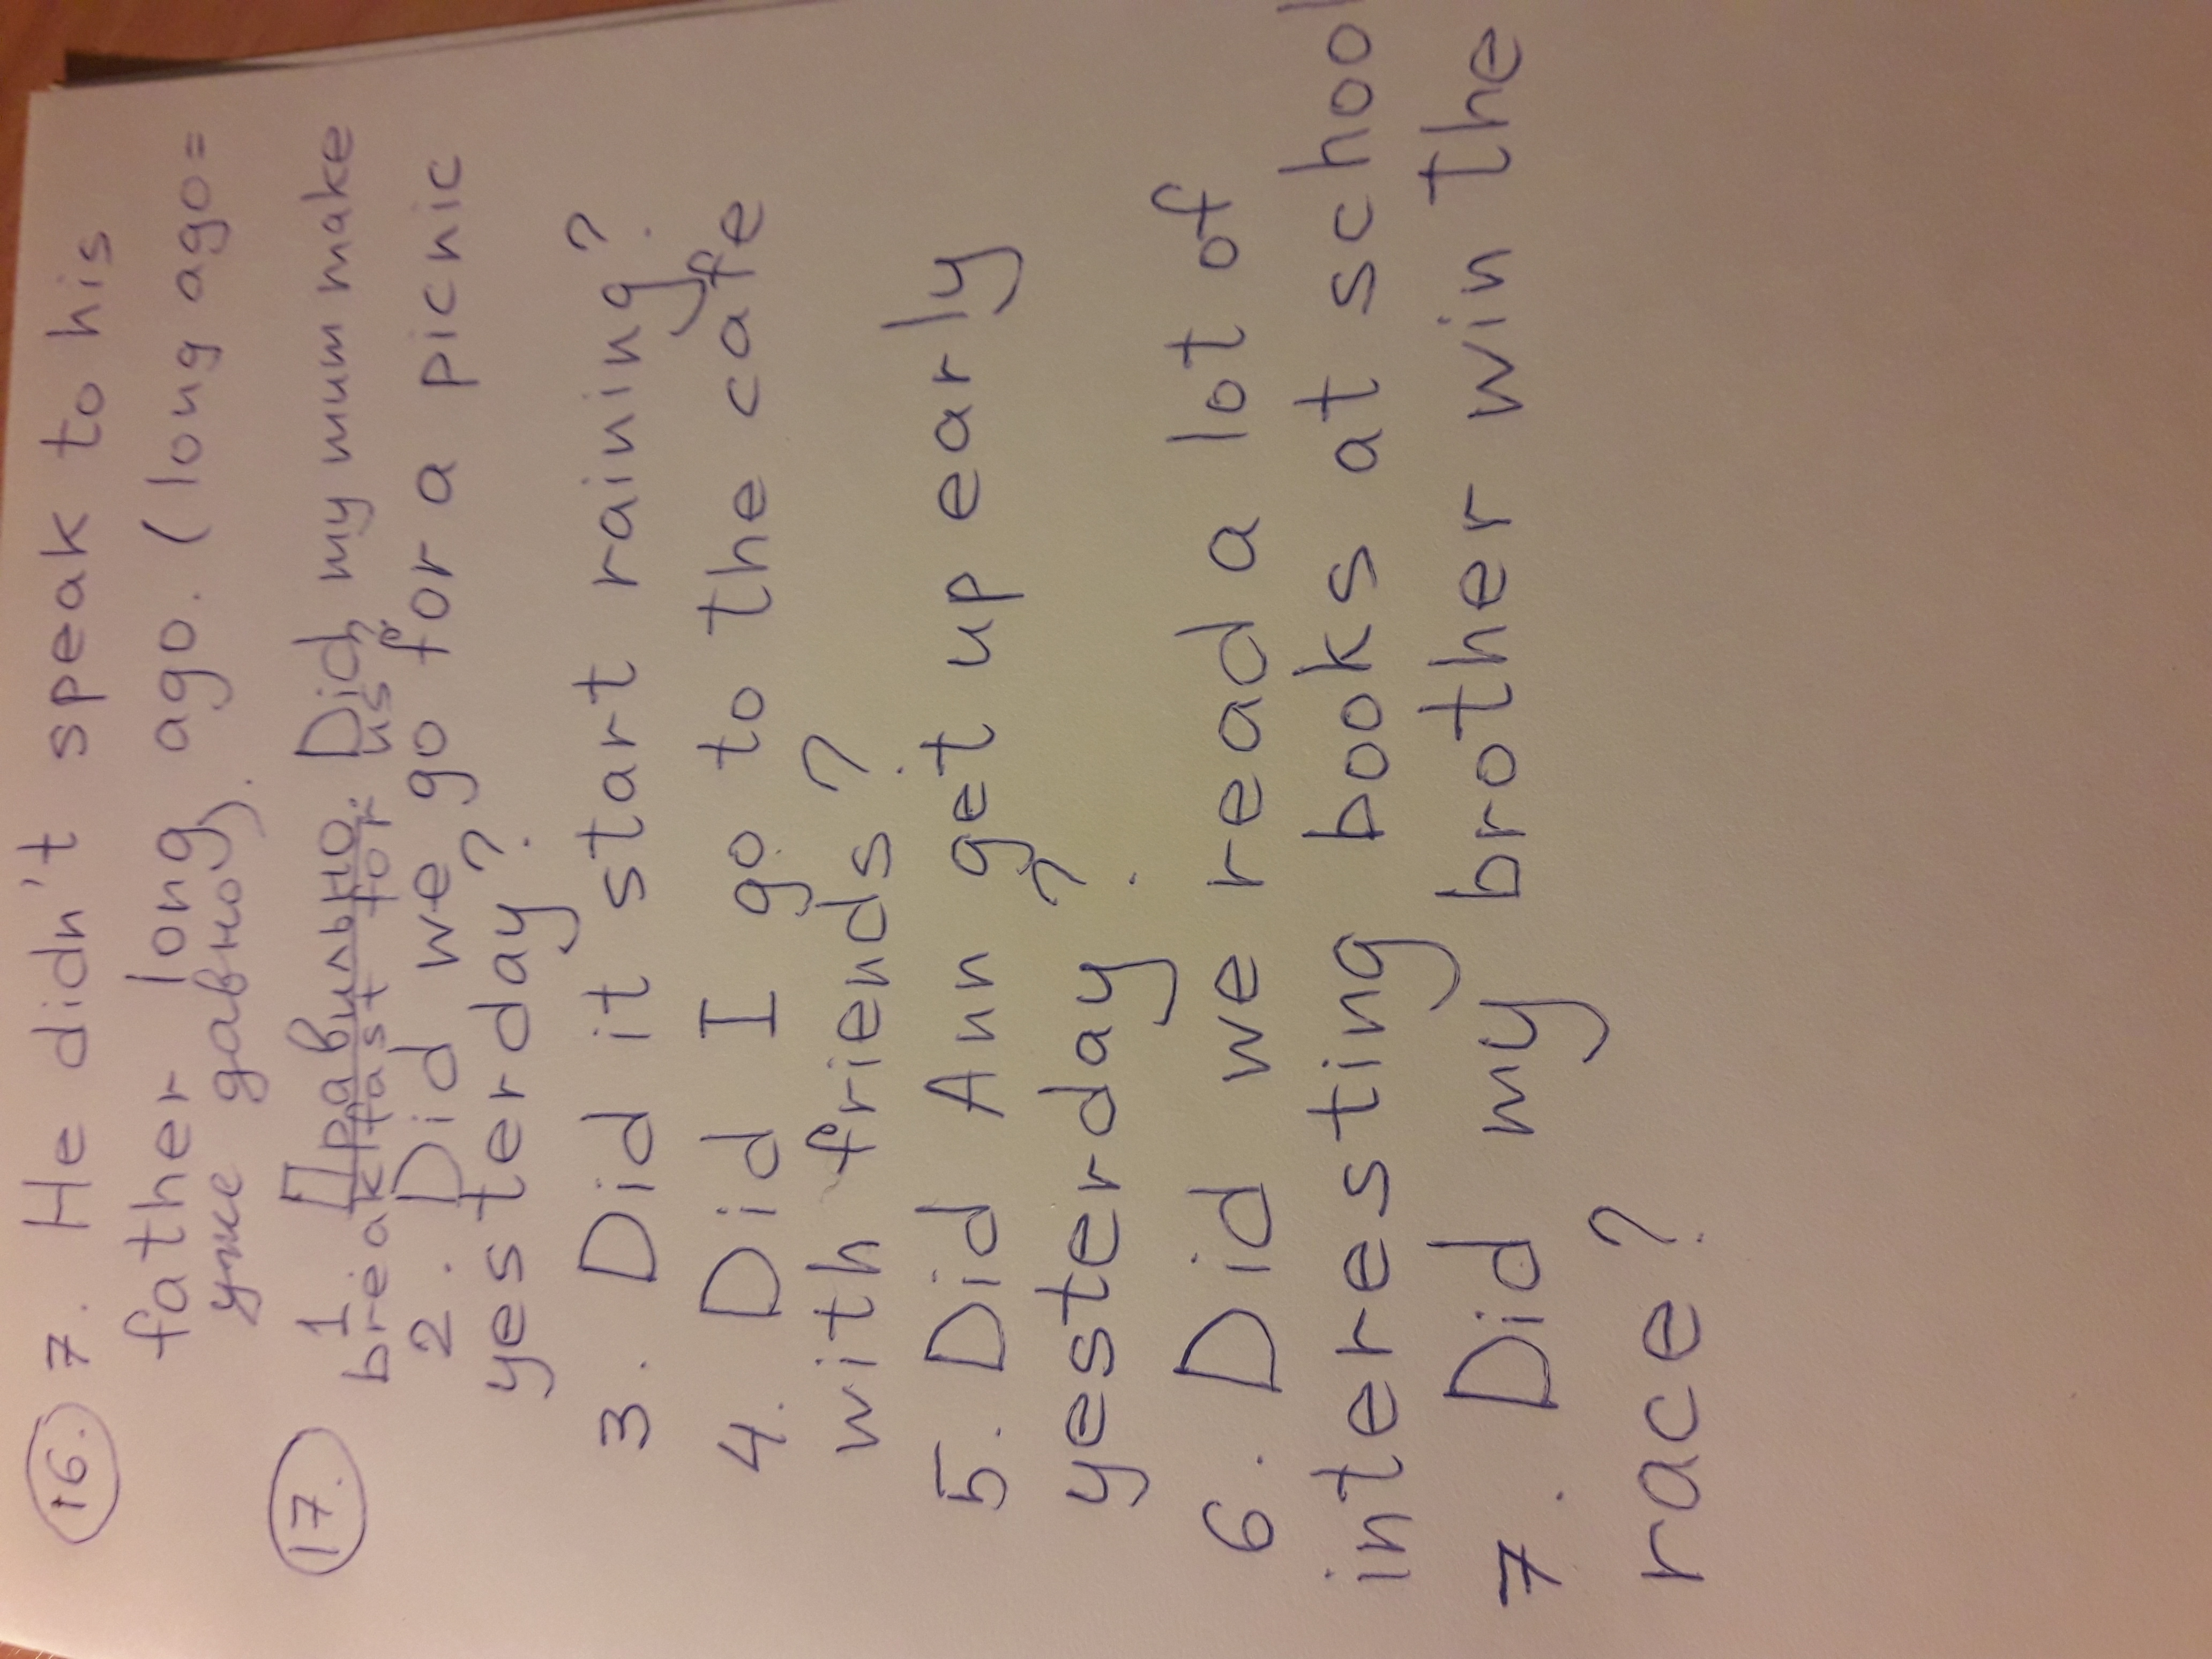 16. 7. He didn't speak to his
father long ago. (long ago =
уже давно).
17. 1 Правильно. Did my mum make
breakfast for us
2. Did we go for a picnic
yesterday?
3. Did it start raining?
4. Did I go to the cafe
with friends?
5. Did Ann get up early
yesterday?
6. Did we read a lot of
interesting books at school
7. Did my brother win the
race?